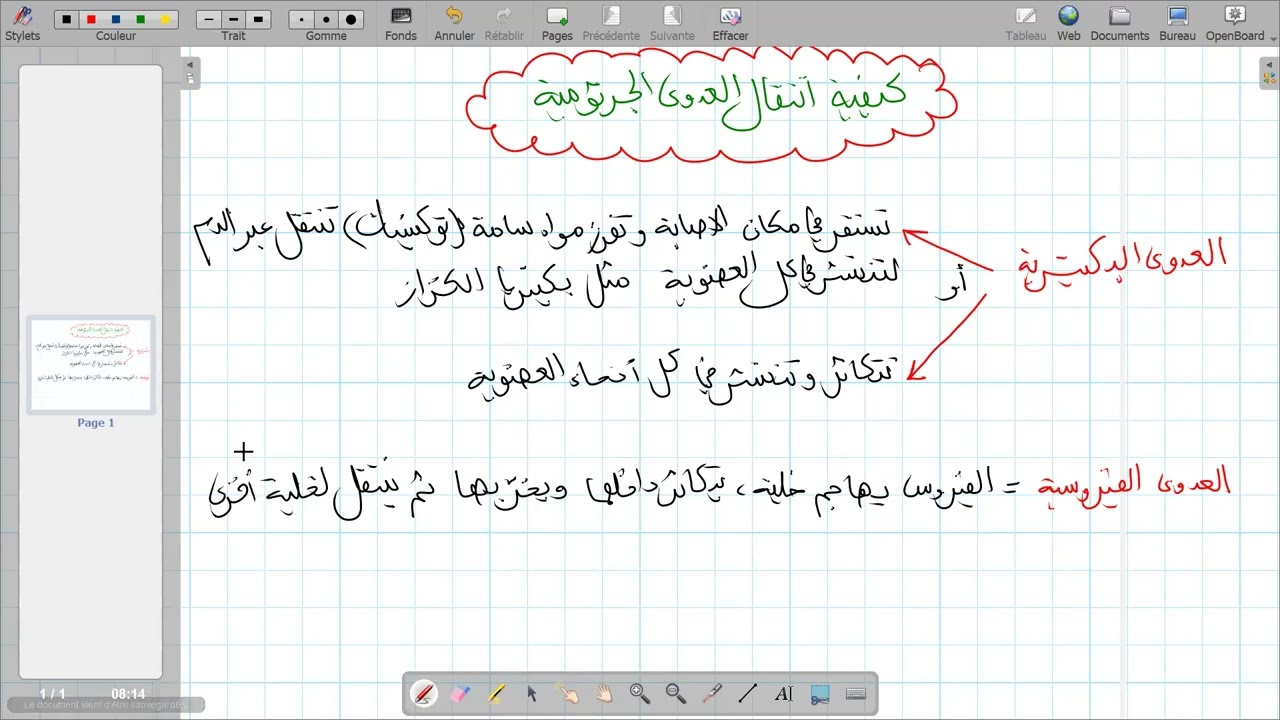 Stylets
Couleur
Trait
Gomme
Fonds
Annuler
Rétablir
Pages
Précédente
Suivante
Effacer
Tableau
Web
Documents
Bureau
OpenBoard
كيفية انتقال العدوى الجرثومية
العدوى البكتيرية
تستقر في مكان الاصابة و تفرز مواد سامة (توكسينات) تنتقل عبر الدم
أو
لتنتشر في كل العضوية مثل بكتيريا الكزاز
تتكاثر و تنتشر في كل أنحاء العضوية
العدوى الفيروسية = الفيروس يهاجم خلية، يتكاثر داخلها ويخربها ثم ينتقل لخلية أخرى
Page 1
1 / 1
08:14
Le document vient d'être sauvegardé.
AI